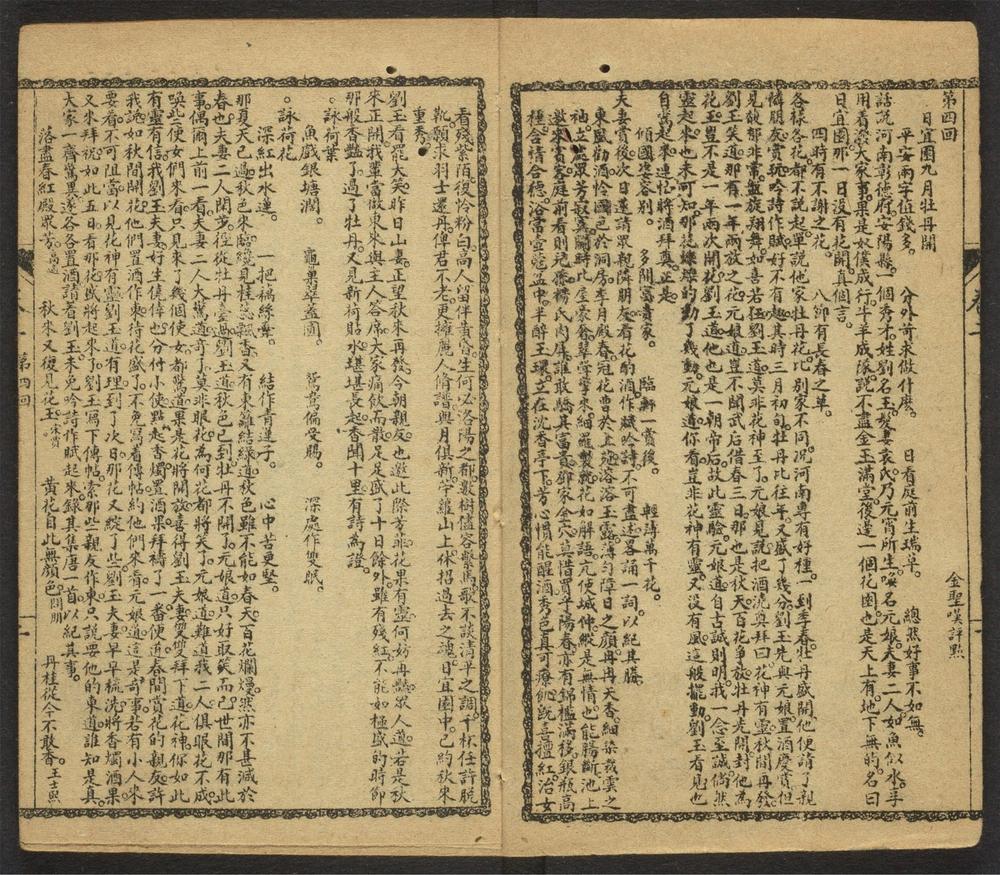 第四回
日宜園九月牡丹開
金聖嘆評點
平安兩字值錢多。
分外苛求做什麽。
日看庭前生瑞草。
總然好事不如無。
話說河南彰德府安陽縣一個秀才姓劉名玉發妻袁氏乃元宵所生喚名元娘夫妻二人如魚似水手
用看潑大家事果是奴僕成行牛羊成隊說不盡金玉滿堂後邊一個花園也是天上有地下無的名曰
日宜園那一日沒有花開真個言。
四時有不謝之花。
八節有長春之草。
各樣各花都不說起單說他家牡丹花比別家不同況河南專有好種一到季春牡丹盛開他便請了親
憐朋友賞玩吟詩作賦好不有趣其時三月初旬牡丹比往年又盛了幾分劉玉先與元娘置酒慶賞但
見馥郁非常盤旋翔舞如喜若狂劉玉道莫非花神至了元娘見說把酒澆奠拜曰花神有靈秋間再發
劉玉笑道那有一年兩放之花元娘道豈不聞武后借春三日那也是秋天百花爭放牡丹先開封他為
花王豈不是一年兩次開花劉玉道他也是一朝帝后故此靈驗元娘道自古誠則明我一念至誠倘然
靈起來也未可知那花縱的動了幾動元娘道你看豈非花神有靈又沒有風這般擺動劉玉看見也
自駡起來連忙將酒拜奠正是
傾國姿容別。
多開富貴家。
臨軒一賞後。
輕薄萬千花。
夫妻賞後次日邀請眾親隣朋友看花酌酒作賦吟詩不可盡述各誦一詞以紀其勝
東風勸酒怜國色於洞房李月殿春冠花曹於上苑溶溶玉露薄勻障日之顏冉冉天香細染裁雲之
袖立處眾芳寂寞
邀來賓客庭前看則兒
種合情合德浴當空
重秀。
看殘紫陌復怜粉白高人留伴黃昏生何必洛陽之都數樹儘容繫馬歌不談清平之調千杯任許脫
靴願求羽士還丹俾君不老更擁麗人脩譜與月俱新苧蘿山上休招過去之魂日宜園中已約秋來
劉玉看罷大笑昨日山妻正望秋來再發今朝親友也邀此際芳菲花果有靈何妨再豔眾人道若是秋
來正開我輩當做東來與主人答席大家痛飲而散足足盛了十日餘外雖有殘紅不能如極盛的時節
那般香艷了過了牡丹又見新荷貼水堪堪長起香聞十里有詩為證。
詠荷葉
魚戲銀塘濶。
龜巢翠蓋圓。
鴛鴦偏受賜。
深處作雙眠。
詠荷花
深紅出水蓮。
一把藕絲牽。
結作青蓮子。
心中苦更堅。
那夏天已過秋色來臨纔見桂蕊飄香又有東籬結綠道秋色雖不能如春天百花爛熳然亦不甚減於
春也夫妻二人閒步徑從牡丹臺過劉玉道秋色已到牡丹不開了元娘道只好取笑而已世間那有此
事偶爾上前一看夫妻二人大驚道奇了莫非眼花為何花都將笑了元娘道難道我二人俱眼花不成
喚些使女們來看只見來了幾個使女都驚道果是花將開放喜得劉玉夫妻雙雙拜下道花神你如此
有靈有信我劉玉夫妻好生僥倖也分付小使點起香燭置酒果拜禱了一番便道春間賞花的親友許
我說如秋間開花他們置酒作東待待花盛了不免寫着傳帖約他們來看元娘道這是奇事若有小人來
要看不可阻當以見花神有靈劉玉道有理到了次日那花又綻了些劉玉夫妻早早梳洗將香燭酒果
又來拜祝如此五日看那花盛將起來了劉玉寫下傳帖索那些親友作東只說要他的東道誰知是真
大家一齊驚異遂各各置酒請看劉玉未免吟詩作賦起來錄其集唐一首以紀其事。
落盡春紅殿眾芳
秋來又復見花王
黃花自此無顏色
丹桂從今不敢香
第四回